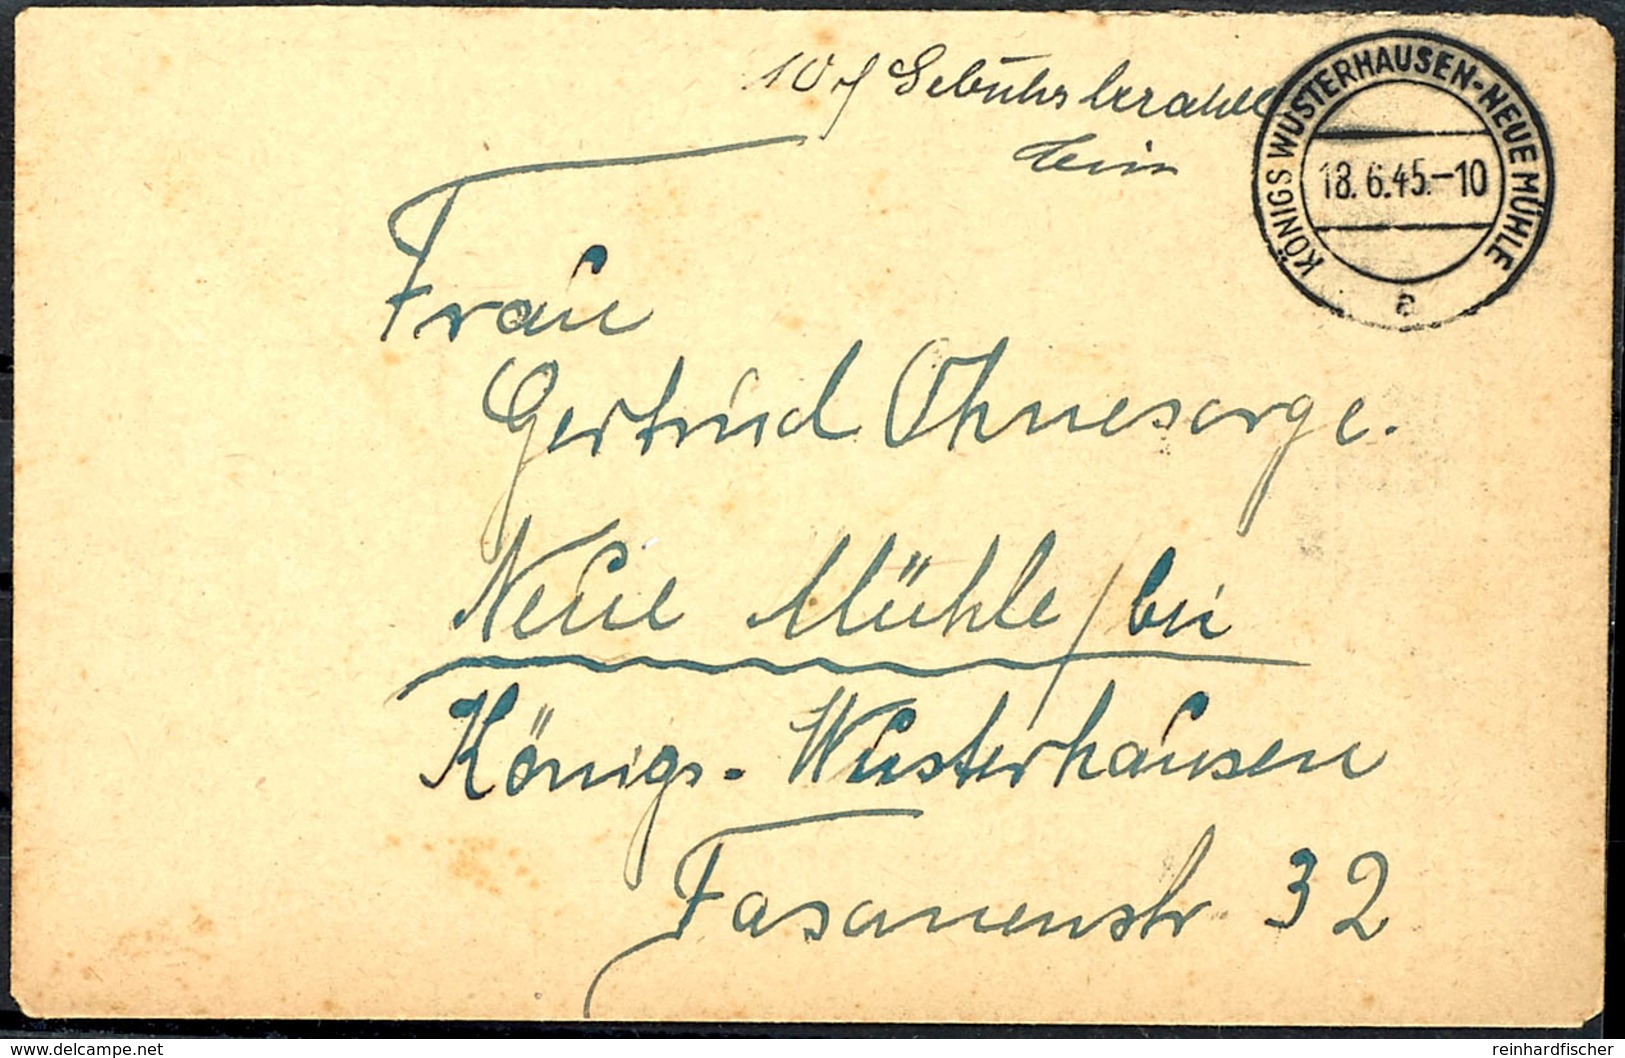 10 Gebühr bezahlt
KÖNIGS WUSTERHAUSEN-NEUE MÜHLE
18.6.45.-10
a
Frau
Gertrud Ohnesorge.
Neue Mühle / bei
Königs-Wusterhausen
Fasanenstr 32
www.delcampe.net
reinhardfischer